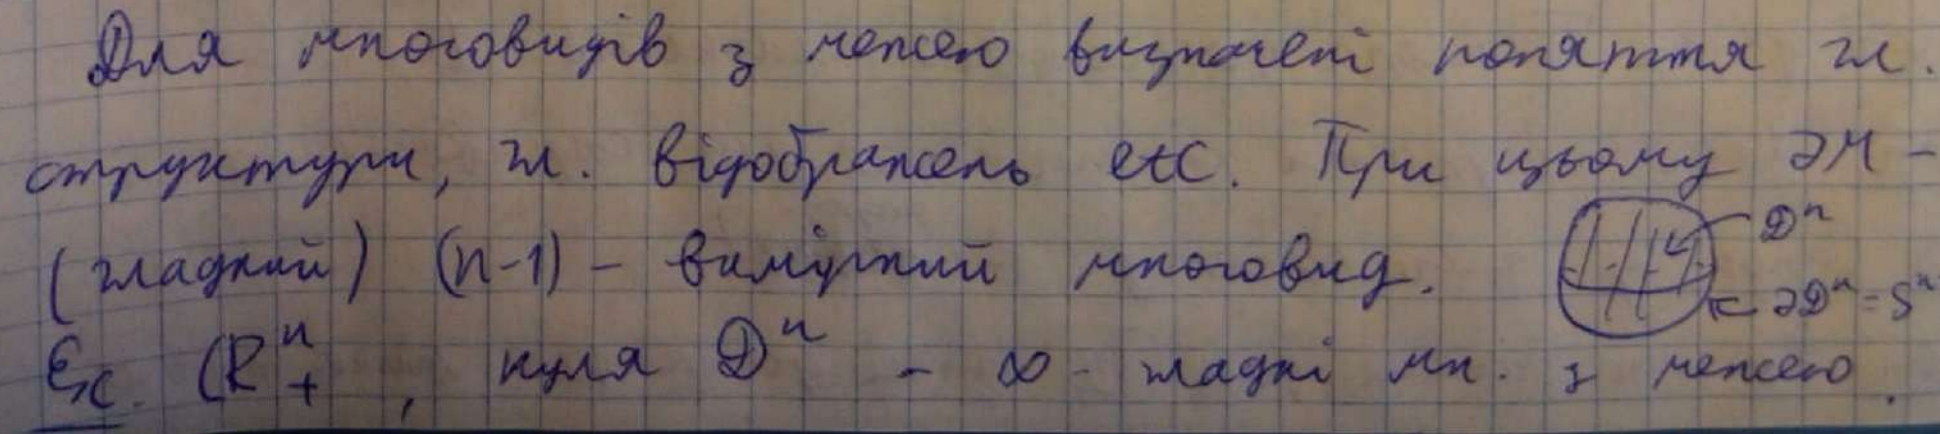 Для многовидів з межею визначені поняття гл.
структури, гл. відображень etc. При цьому ∂M –
(гладкий) (n-1) – вимірний многовид.
D^n
∂D^n = S^n
Ex. R^n_+, куля D^n – ∞ - гладкі мн. з межею.